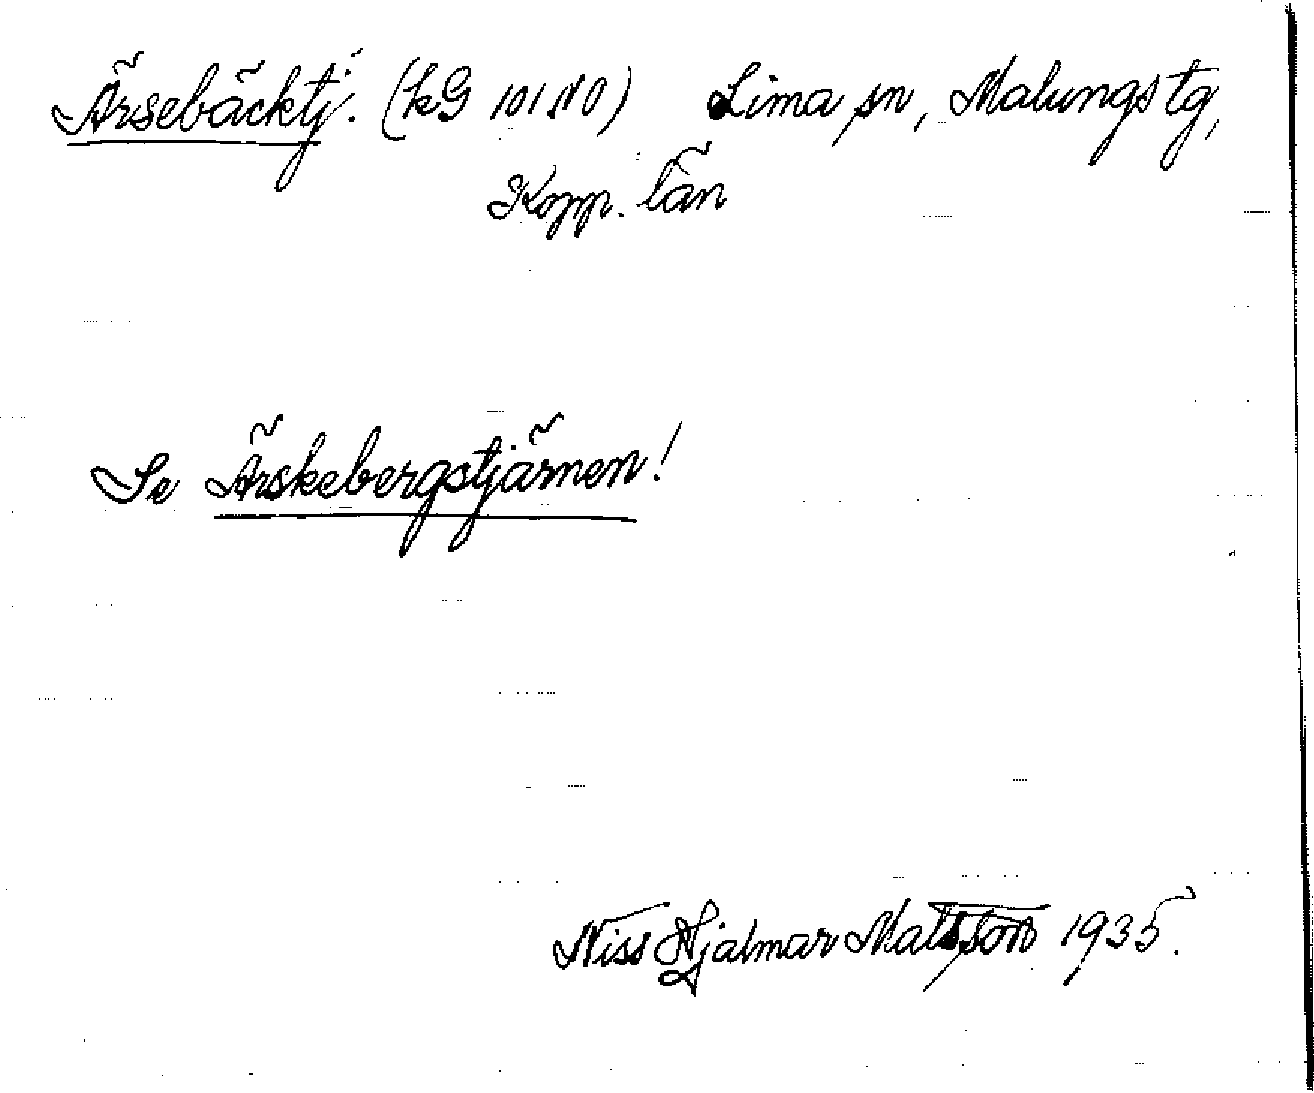 Ärsebäcktj. (kG 101 NO) Lima sn, Malungs tg,
Kopp. län
Se Ärskebergstjärnen!
Niss Hjalmar Matsson 1935.